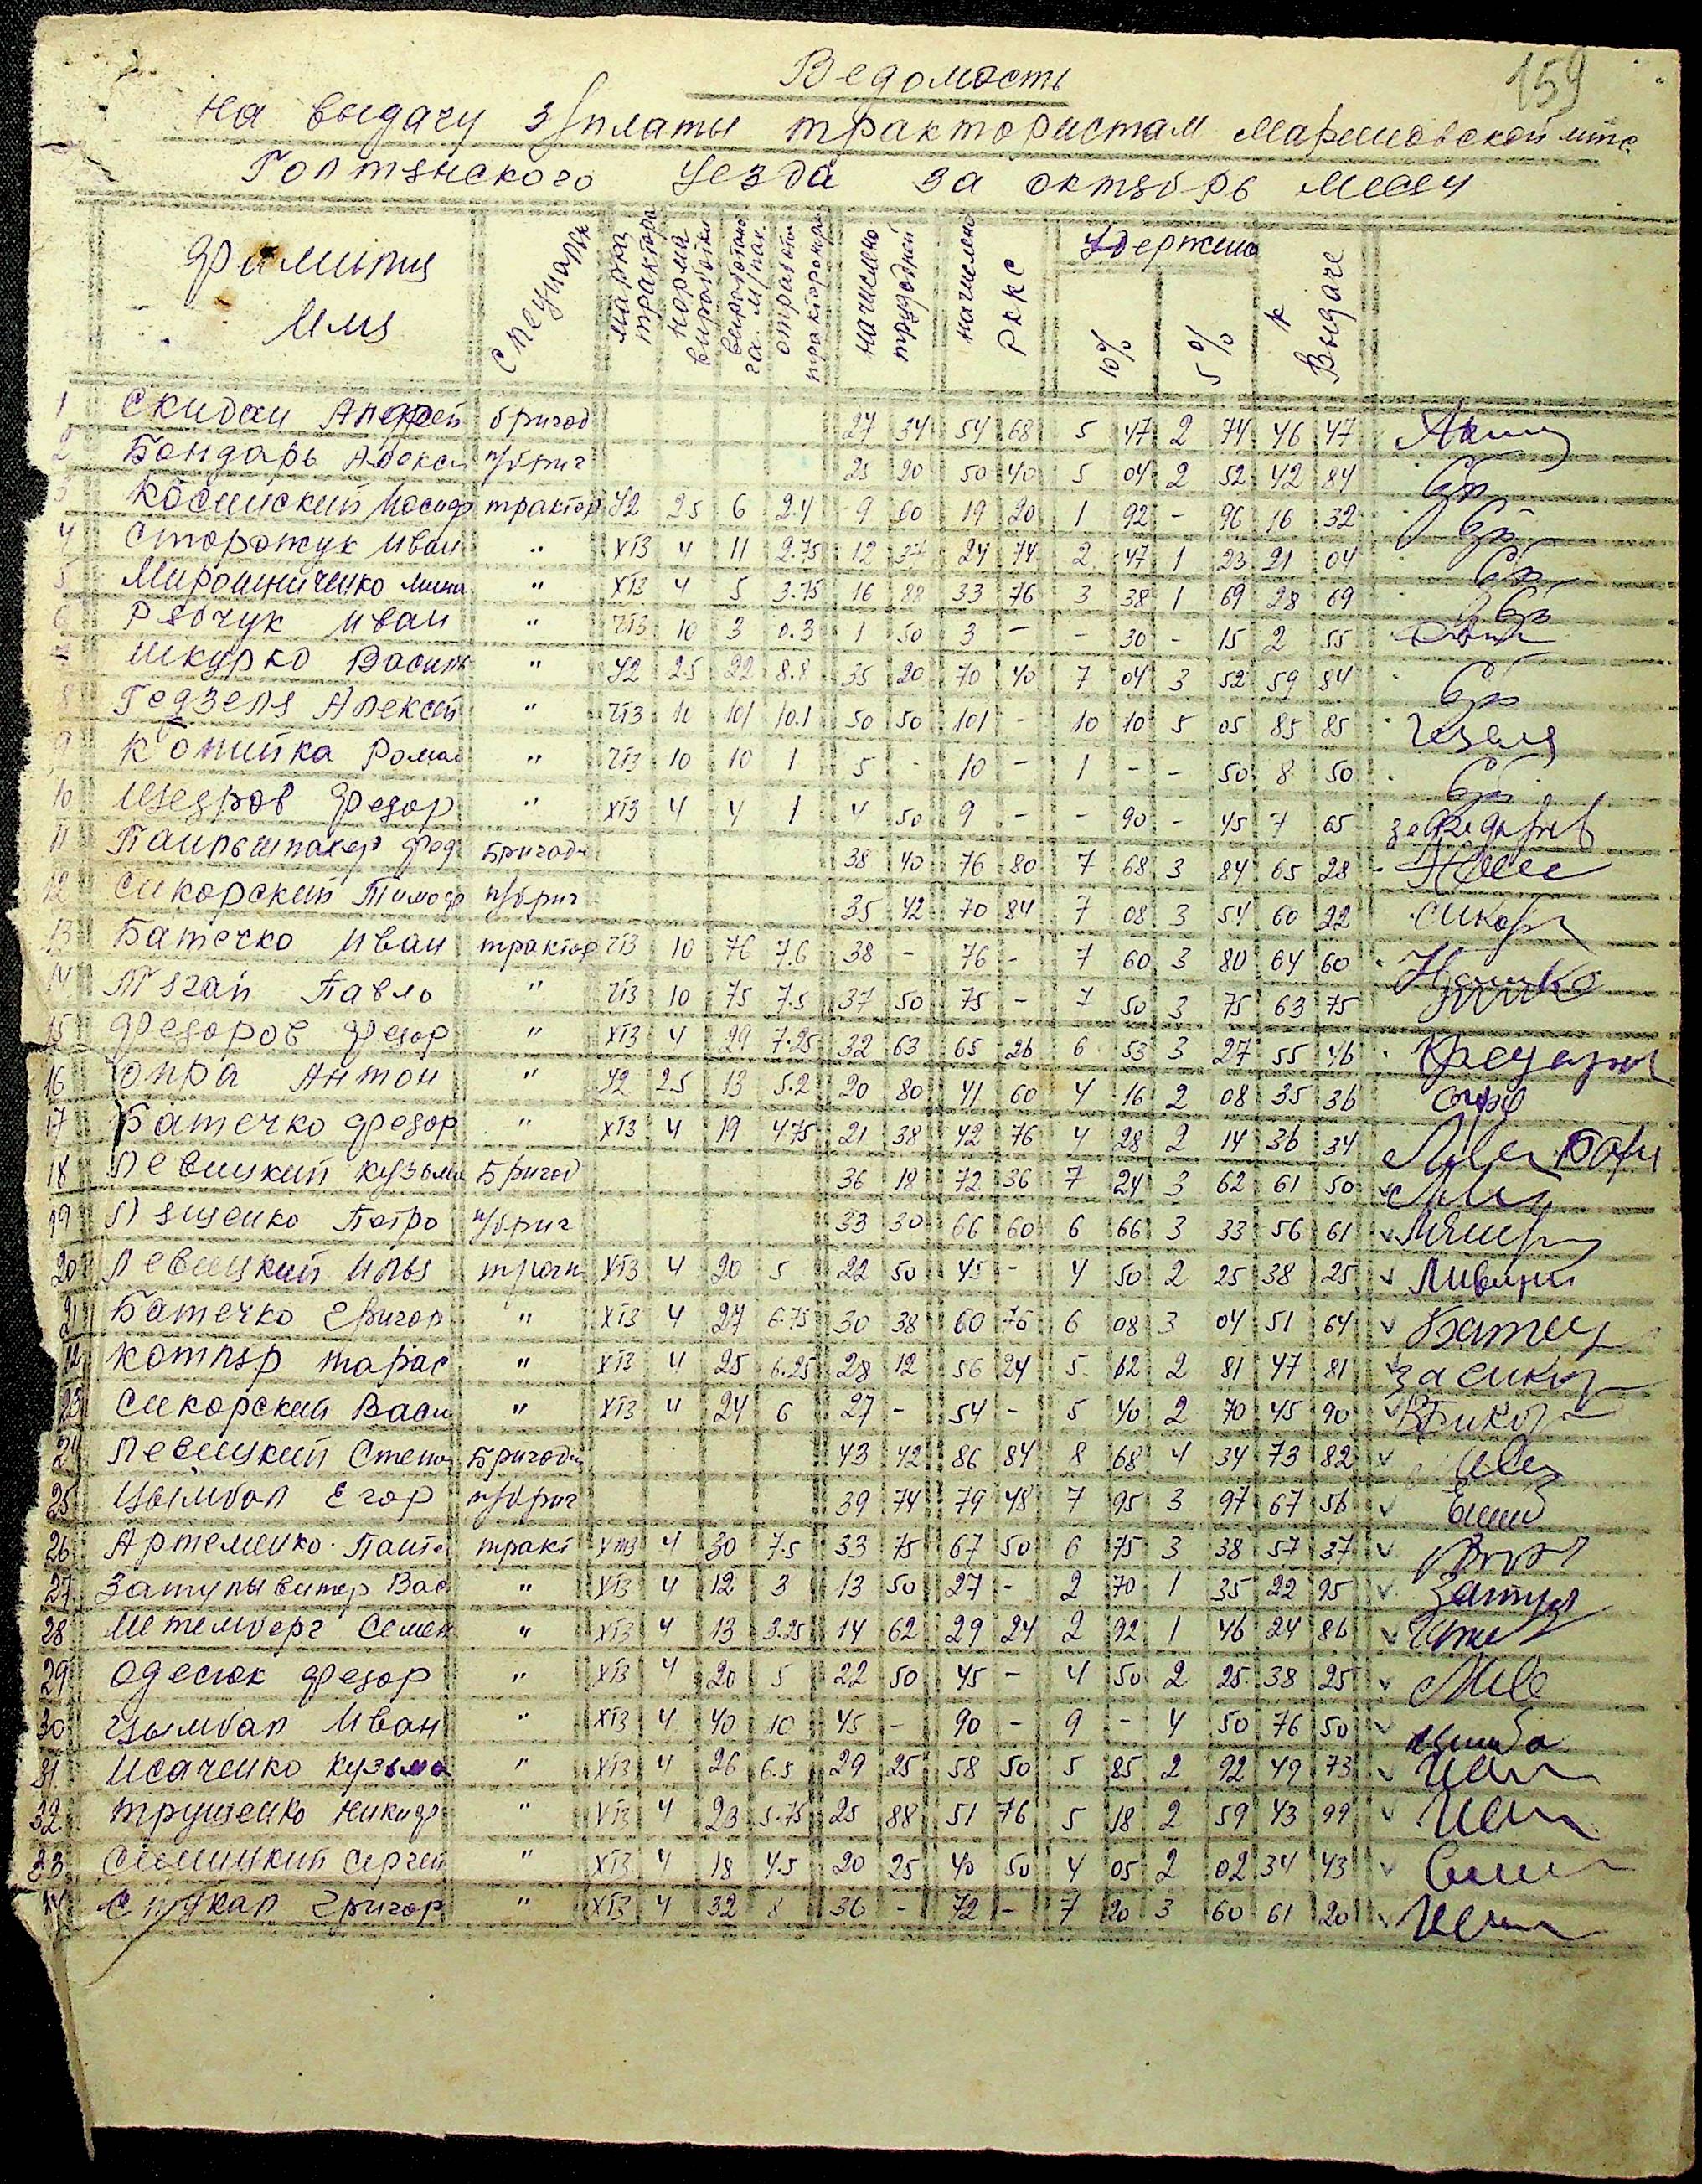 159
Ведомость
на выдачу з/платы трактористам Мариновской мтс
Голтянского уезда за октябрь месяц
Фамилия Имя Специальн марка трактора норма выработки выработано га. м/пах. отработан начислено трудодней начислено РККС Удержано 10% 5% к Выдаче
1 Скидан Андрей бригад 27 34 54 68 5 47 2 74 46 47
2 Бондарь Алекс п/бриг 25 20 50 40 5 04 2 52 42 84
3 Косинский Иосиф трактор У2 25 6 2.4 9 60 19 20 1 92 - 96 16 32
4 Сторожук Иван " ХТЗ 4 11 2.75 12 37 24 74 2 47 1 23 21 04
5 Мирошниченко " ХТЗ 4 5 3.75 16 88 33 76 3 38 1 69 28 69
6 Рябчук Иван " ЧТЗ 10 3 0.3 1 50 3 - - 30 - 15 2 55
Шкурко Василь " У2 2.5 22 8.8 35 20 70 40 7 04 3 52 59 84
8 Гедзеля Алексей " ЧТЗ 10 101 10.1 50 50 101 - 10 10 5 05 85 85
9 Копийка Роман " ЧТЗ 10 10 1 5 - 10 - 1 - - 50 8 50
10 Щедров Федор " ХТЗ 4 4 1 4 50 9 - - 90 - 45 7 65
11 Фед Бригади 38 40 76 80 7 68 3 84 65 28
12 Сикорский Тимоф п/бриг 35 42 70 84 7 08 3 54 60 22 Сикор
13 Батечко Иван трактор ЧТЗ 10 76 7.6 38 - 76 - 7 60 3 80 64 60
14 Тягай Павло " ЧТЗ 10 75 7.5 37 50 75 - 7 50 3 75 63 75
15 Федоров Федор " ХТЗ 4 29 7.25 32 63 65 26 6 53 3 27 55 46
16 Опра Антон " У2 2.5 13 5.2 20 80 41 60 4 16 2 08 35 36
17 Батечко Федор " ХТЗ 4 19 4.75 21 38 42 76 4 28 2 14 36 34
18 Левицкий Кузьма Бригад 36 18 72 36 7 24 3 62 61 50
19 Лященко Петро п/бриг 33 30 66 60 6 66 3 33 56 61
20 Левицкий Илья тракт ХТЗ 4 20 5 22 50 45 - 4 50 2 25 38 25
21 Батечко Григор " ХТЗ 4 27 6.75 30 38 60 76 6 08 3 04 51 64 Батец
22 Котляр Тарас " ХТЗ 4 25 6.25 28 12 56 24 5 62 2 81 47 81 за сикор
23 Сикорский Васи " ХТЗ 4 24 6 27 - 54 - 5 40 2 70 45 90
24 Левицкий Степ Бригади 43 42 86 84 8 68 4 34 73 82
25 Цымбал Егор п/бриг 39 74 79 48 7 95 3 97 67 56
26 Артеменко Панте тракт ХТЗ 4 30 7.5 33 75 67 50 6 75 3 38 57 37
27 Затулывитер Вас " ХТЗ 4 12 3 13 50 27 - 2 70 1 35 22 95 Затул
28 Штемберг Семен " ХТЗ 4 13 3.25 14 62 29 24 2 92 1 46 24 86
29 Одесюк Федор " ХТЗ 4 20 5 22 50 45 - 4 50 2 25 38 25
30 Цымбал Иван " ХТЗ 4 40 10 45 - 90 - 9 - 4 50 76 50 Цимба
31 Исаченко Кузьма " ХТЗ 4 26 6.5 29 25 58 50 5 85 2 92 49 73
32 Трушенко Никиф " ХТЗ 4 23 5.75 25 88 51 76 5 18 2 59 43 99
33 Сергей " ХТЗ 4 18 4.5 20 25 40 50 4 05 2 02 34 43
Стукал Григор " ХТЗ 4 32 8 36 - 72 - 7 20 3 60 61 20